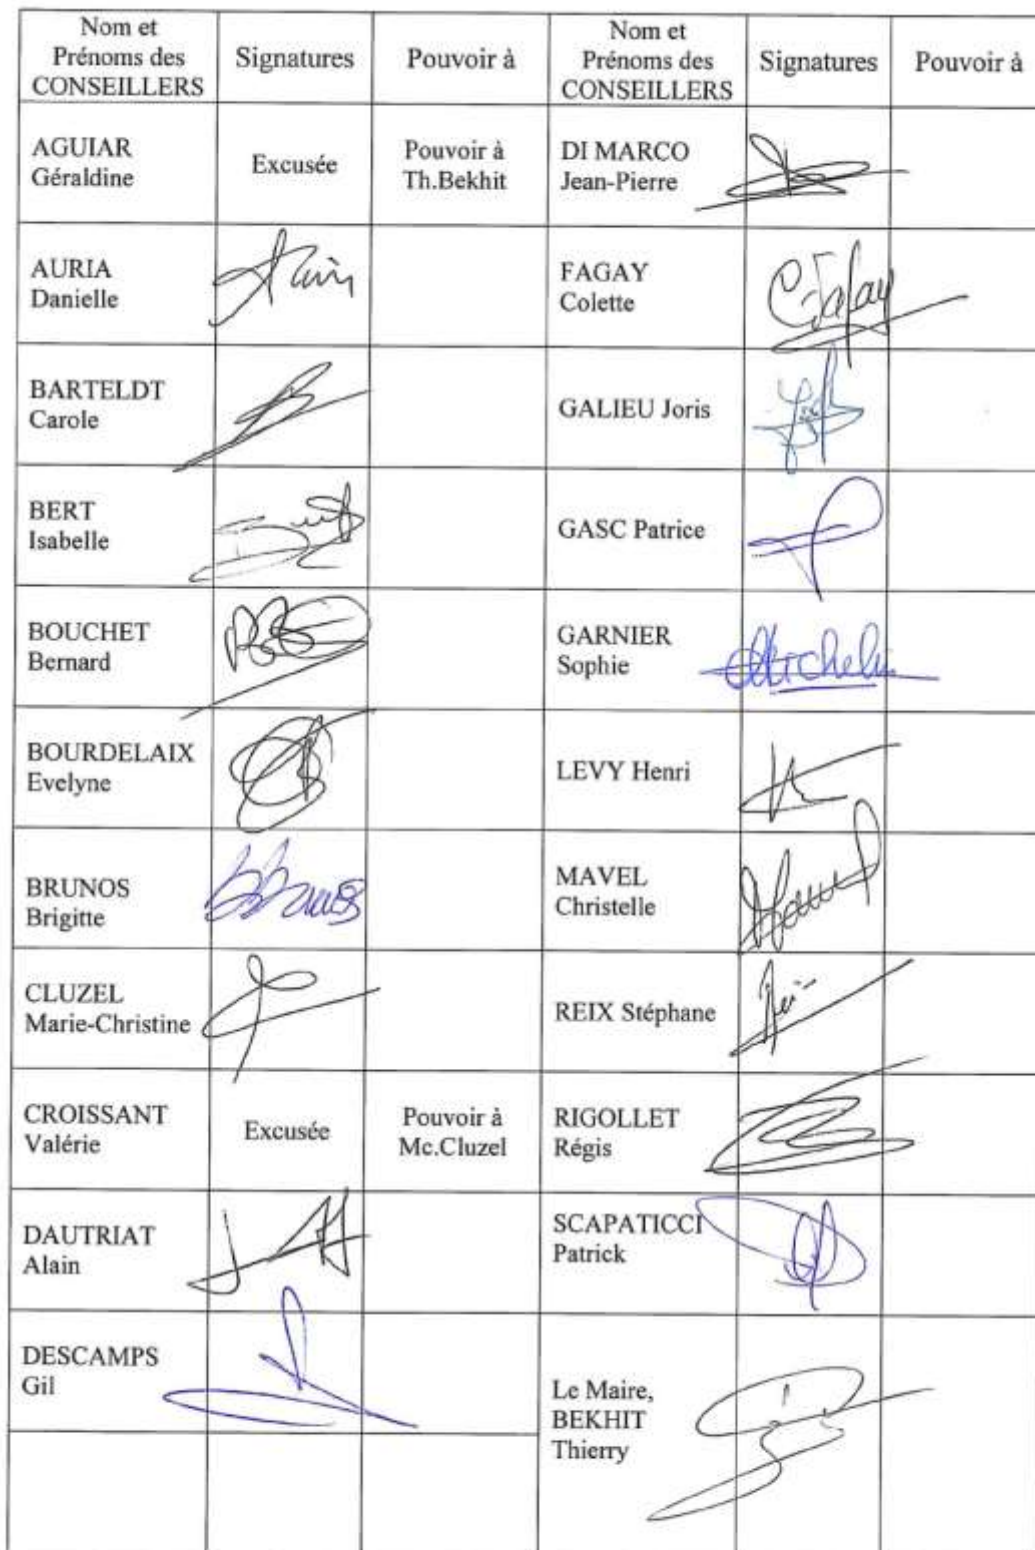 Nom et
Prénoms des
CONSEILLERS
Signatures
Pouvoir à
Nom et
Prénoms des
CONSEILLERS
Signatures
Pouvoir à
AGUIAR
Géraldine
Excusée
Pouvoir à
Th.Bekhit
DI MARCO
Jean-Pierre
AURIA
Danielle
FAGAY
Colette
C. Fagay
BARTELDT
Carole
GALIEU Joris
BERT
Isabelle
GASC Patrice
BOUCHET
Bernard
GARNIER
Sophie
BOURDELAIX
Evelyne
LEVY Henri
BRUNOS
Brigitte
MAVEL
Christelle
CLUZEL
Marie-Christine
REIX Stéphane
CROISSANT
Valérie
Excusée
Pouvoir à
Mc.Cluzel
RIGOLLET
Régis
DAUTRIAT
Alain
SCAPATICCI
Patrick
DESCAMPS
Gil
Le Maire,
BEKHIT
Thierry